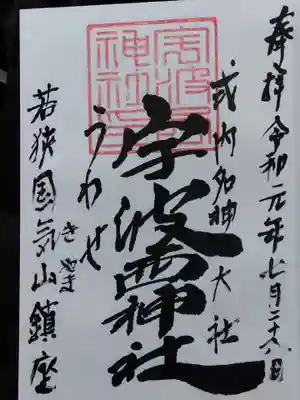 奉拝 令和元年七月二十八日
式内名神大社
宇波西神社
うわせ
若狭国気山鎮座
きやま